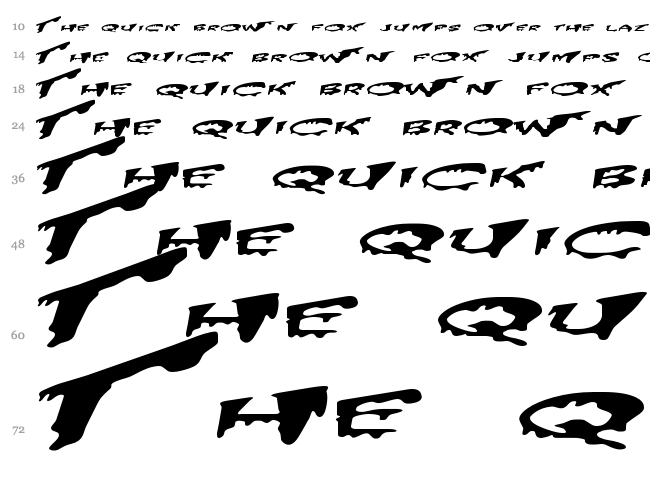 10 THE QUICK BROWN FOX JUMPS OVER THE LAZ
14 THE QUICK BROWN FOX JUMPS O
18 THE QUICK BROWN FOX
24 THE QUICK BROWN
36 THE QUICK BR
48 THE QUIC
60 THE QU
72 THE Q